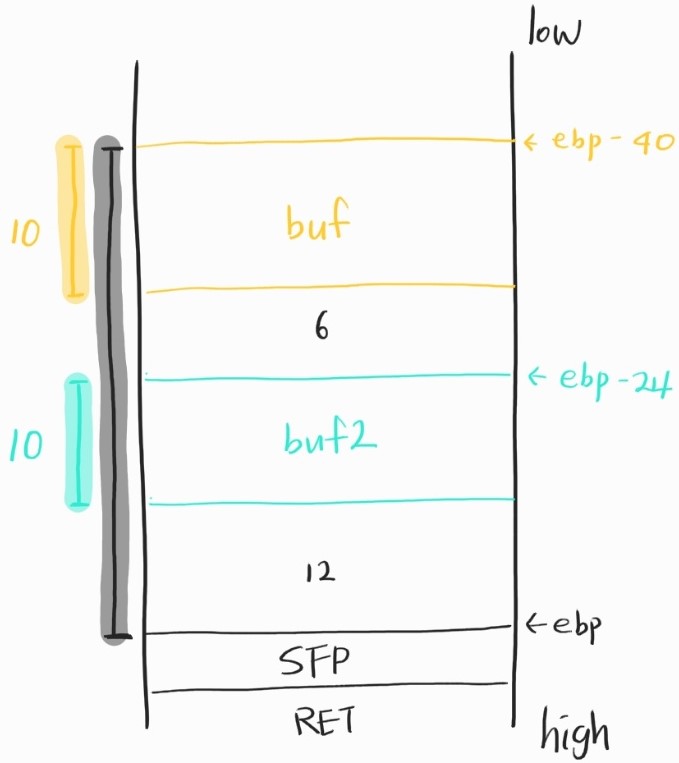 low
← ebp - 40
10
buf
6
← ebp - 24
10
buf2
12
← ebp
SFP
RET
high